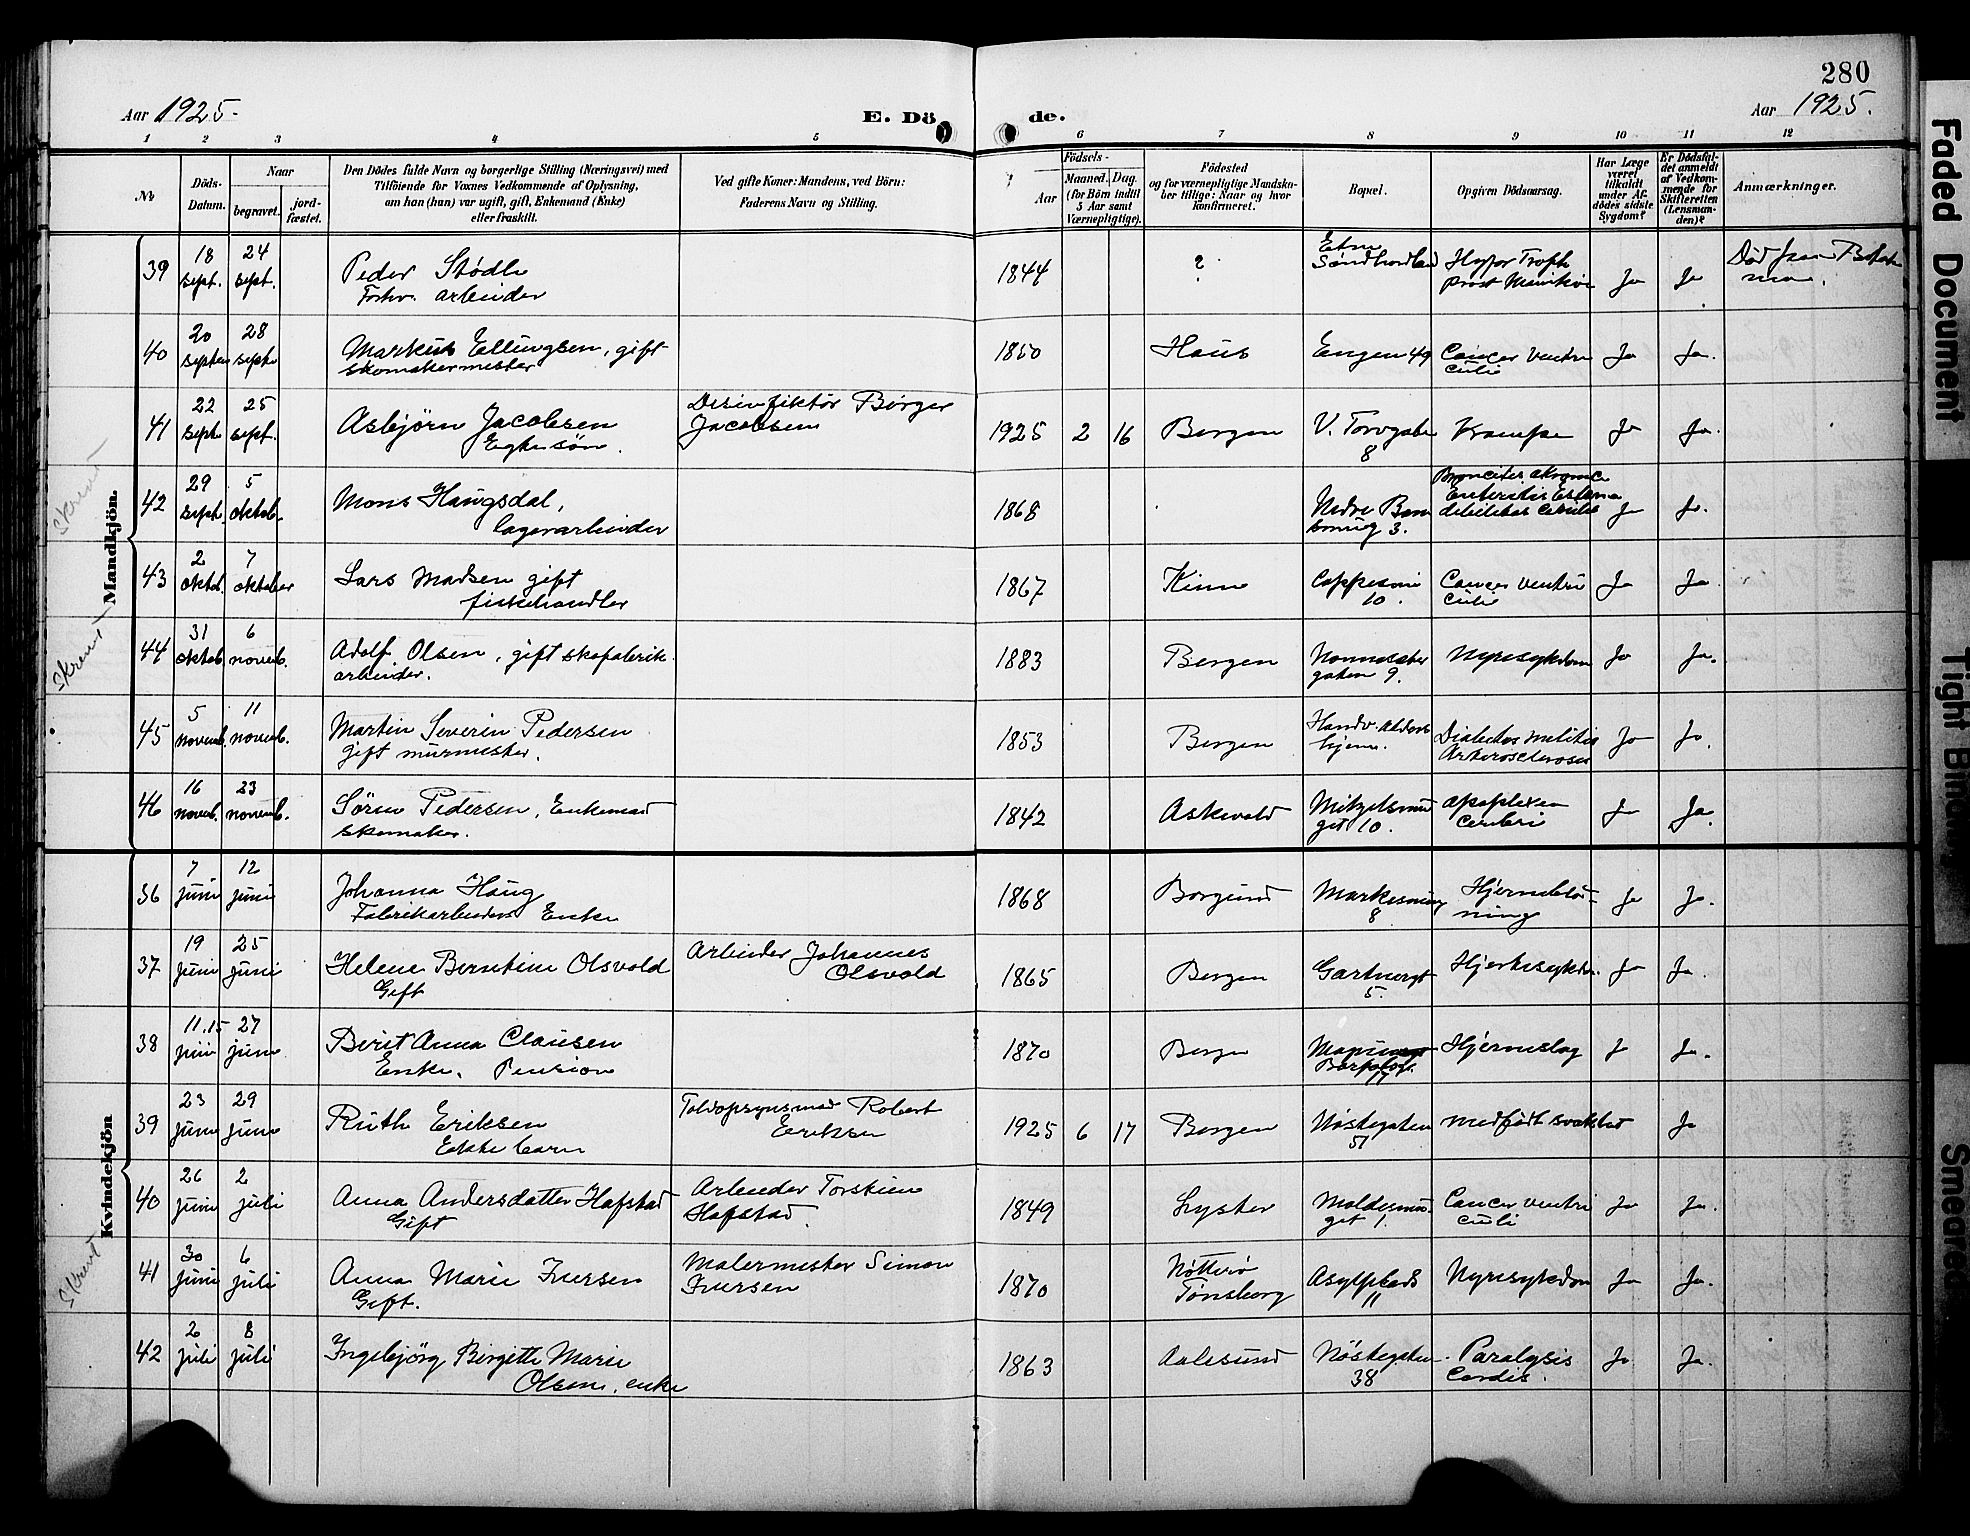 280
Aar 1925.
E. Döde.
Aar 1925.
1 2 3 4 5 6 7 8 9 10 11 12
No
Döds-
Datum.
Naar
begravet.
jord-
fæstet.
Den Dödes fulde Navn og borgerlige Stilling (Næringsvei) med
Tilföiende for Voxnes Vedkommende af Oplysning,
om han (hun) var ugift, gift, Enkemand (Enke)
eller fraskilt.
Ved gifte Koner: Mandens, ved Börn:
Faderens Navn og Stilling.
Födsels-
Aar
Maaned. Dag.
(for Börn indtil
5 Aar samt
Værnepligtige).
Födested
og for værnepligtige Mandska-
ber tillige: Naar og hvor
konfirmeret.
Bopæl.
Opgiven Dödsaarsag.
Har Læge
været
tilkaldt
under Af-
dödes sidste
Sygdom?
Er Dödsfal-
det anmeldt
af Vedkom-
mende for
Skifteretten
(Lensman-
den)?
Anmærkninger.
Mandkjön.
39 18 sept. 24 sept. Peder Stödle
Forhv. arbeider 1844 ? Etne
Søndhordland Ja Ja
40 20 septe 28 septe Markus Ellingsen, gift
skomakermester 1850 Haus Engen 49 Cancer ventri
culi Ja Ja.
41 22 sept. 25 sept. Asbjörn Jacobsen
Egte sön. Desinfektör Börger
Jacobsen 1925 2 16 Bergen V. Torvgate
8 Krampe Ja Ja.
42 29 sept. 5 oktob. Mons Haugsdal,
lagerarbeider 1868 Nedre
3. Ja Ja.
43 2 oktob. 7 oktober Lars Madsen gift
fiskehandler 1867 Kinn
10. Cancer ventri
culi Ja Ja
44 31 oktob. 6 novemb. Adolf Olsen, gift skofabrik
arbeider. 1883 Bergen Nonneseter
gaten 9. Nyresykdom Ja Ja.
45 5 novemb. 11 novemb. Martin Severin Pedersen
gift murmester. 1853 Bergen Handv. Alders
hjem. Diabetes melitis
Arteriosclerosis Ja Ja.
46 16 novemb. 23 novemb. Sören Pedersen, Enkemand
skomaker. 1842 Askvold Mitzelsmu
get 10. apoplexia
cerebri Ja Ja.
Kvindekjön
36 7 juni 12 juni Johanna Haug
Fabrikarbeiders Enke 1868 Borgund
8 Hjerneblöd-
ning Ja Ja.
37 19 juni 25 juni Helene Berntine Olsvold
Gift Arbeider Johannes
Olsvold 1865 Bergen Gartnergt
5. Hjertesykdom Ja Ja.
38 11.15 juni 27 juni Berit Anna Clausen
Enke. Pension 1870 Bergen Hjerneslag J Ja.
39 23 juni 29 juni Ruth Eriksen
Ekte barn Toldopsynsmand Robert
Eriksen 1925 6 17 Bergen Nöstegaten
51 medfödt svakhet Ja
40 26 juni 2 juli Anna Andersdatter Hafstad
Gift Arbeider Torstein
Hafstad. 1849 Lyster Moldesmu
get 1. Cancer ventri
culi Ja Ja.
41 30 juni 6 juli Anna Marie Iversen
Gift. Malermester Simon
Iversen 1870 Nötterö
Tönsberg Asylplads
11 Nyresykdom Ja Ja.
42 2 juli 8 juli Ingebjörg Birgitte Marie
Olsen, enke 1863 Aalesund Nöstegaten
38 Paralysis
Cordis. Ja Ja.
Faded Document
Tight Binding
Smeared